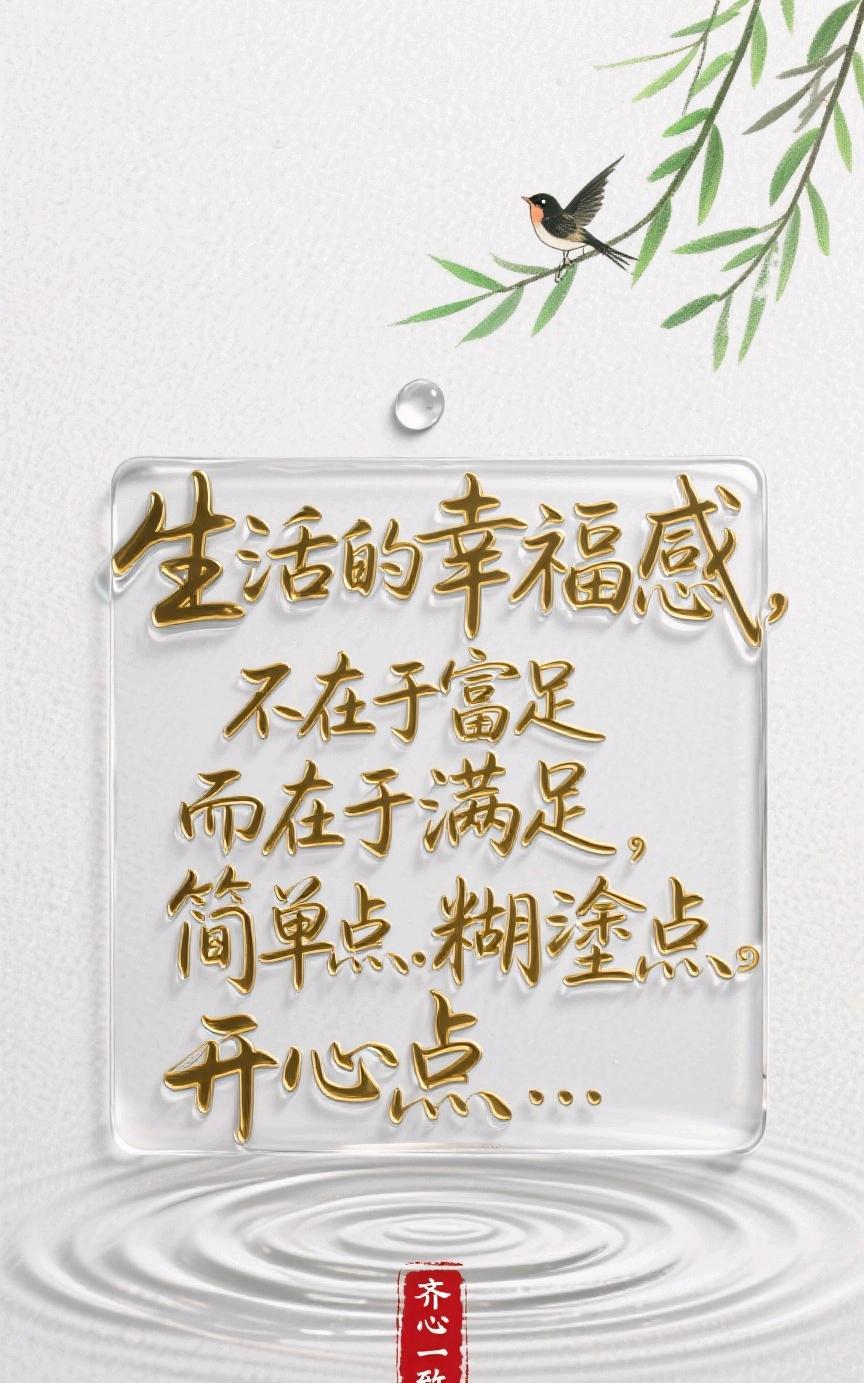 生活的幸福感，
不在于富足
而在于满足，
简单点.糊塗点。
开心点…
齐心一致